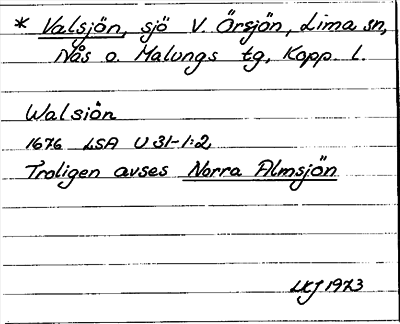 * Valsjön, sjö V. Örsjön, Lima sn,
Nås o. Malungs tg, Kopp. l.
Walsiön
1676 LSA U 31-1:2
Troligen avses Norra Almsjön
LKJ 1973